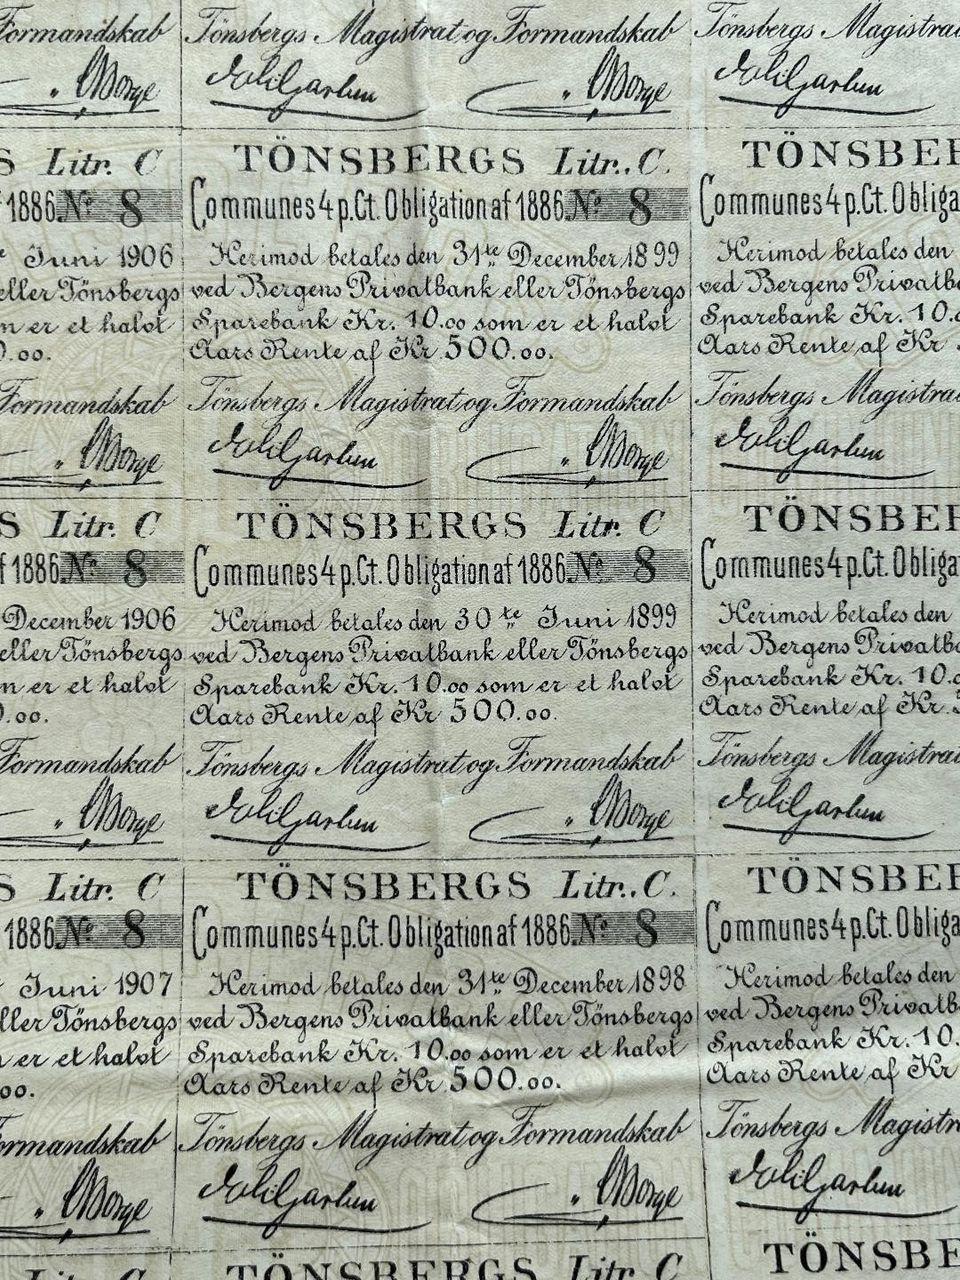 Formandskab
Borge
S Litr. C
1886. No 8
Juni 1906
eller Tönsbergs
er et halvt
0.00.
Formandskab
Borge
S Litr. C
af 1886. No 8
December 1906
eller Tönsbergs
er et halvt
0.00.
Formandskab
Borge
S Litr. C
1886. No 8
Juni 1907
eller Tönsbergs
er et halvt
00.
Formandskab
Borge
Litr. C
Tönsbergs Magistrat og Formandskab
Borge
TÖNSBERGS Litr. C.
Communes 4 p.Ct. Obligation af 1886. No 8
Herimod betales den 31te December 1899
ved Bergens Privatbank eller Tönsbergs
Sparebank Kr. 10.00 som er et halvt
Aars Rente af Kr 500.00.
Tönsbergs Magistrat og Formandskab
Borge
TÖNSBERGS Litr. C
Communes 4 p.Ct. Obligation af 1886. No 8
Herimod betales den 30te Juni 1899
ved Bergens Privatbank eller Tönsbergs
Sparebank Kr. 10.00 som er et halvt
Aars Rente af Kr 500.00.
Tönsbergs Magistrat og Formandskab
Borge
TÖNSBERGS Litr. C.
Communes 4 p.Ct. Obligation af 1886. No 8
Herimod betales den 31te December 1898
ved Bergens Privatbank eller Tönsbergs
Sparebank Kr. 10.00 som er et halvt
Aars Rente af Kr 500.00.
Tönsbergs Magistrat og Formandskab
Borge
TÖNSBERGS Litr. C
Tönsbergs Magistrat
TÖNSBER
Communes 4 p.Ct. Obliga
Herimod betales den
ved Bergens Privatb
Sparebank Kr. 10.
Aars Rente af Kr
Tönsbergs Magistra
TÖNSBER
Communes 4 p.Ct. Obliga
Herimod betales den
ved Bergens Privatb
Sparebank Kr. 10.
Aars Rente af Kr.
Tönsbergs Magistra
TÖNSBE
Communes 4 p.Ct. Obliga
Herimod betales den
ved Bergens Privatb
Sparebank Kr. 10.
Aars Rente af Kr
Tönsbergs Magistr
TÖNSBE